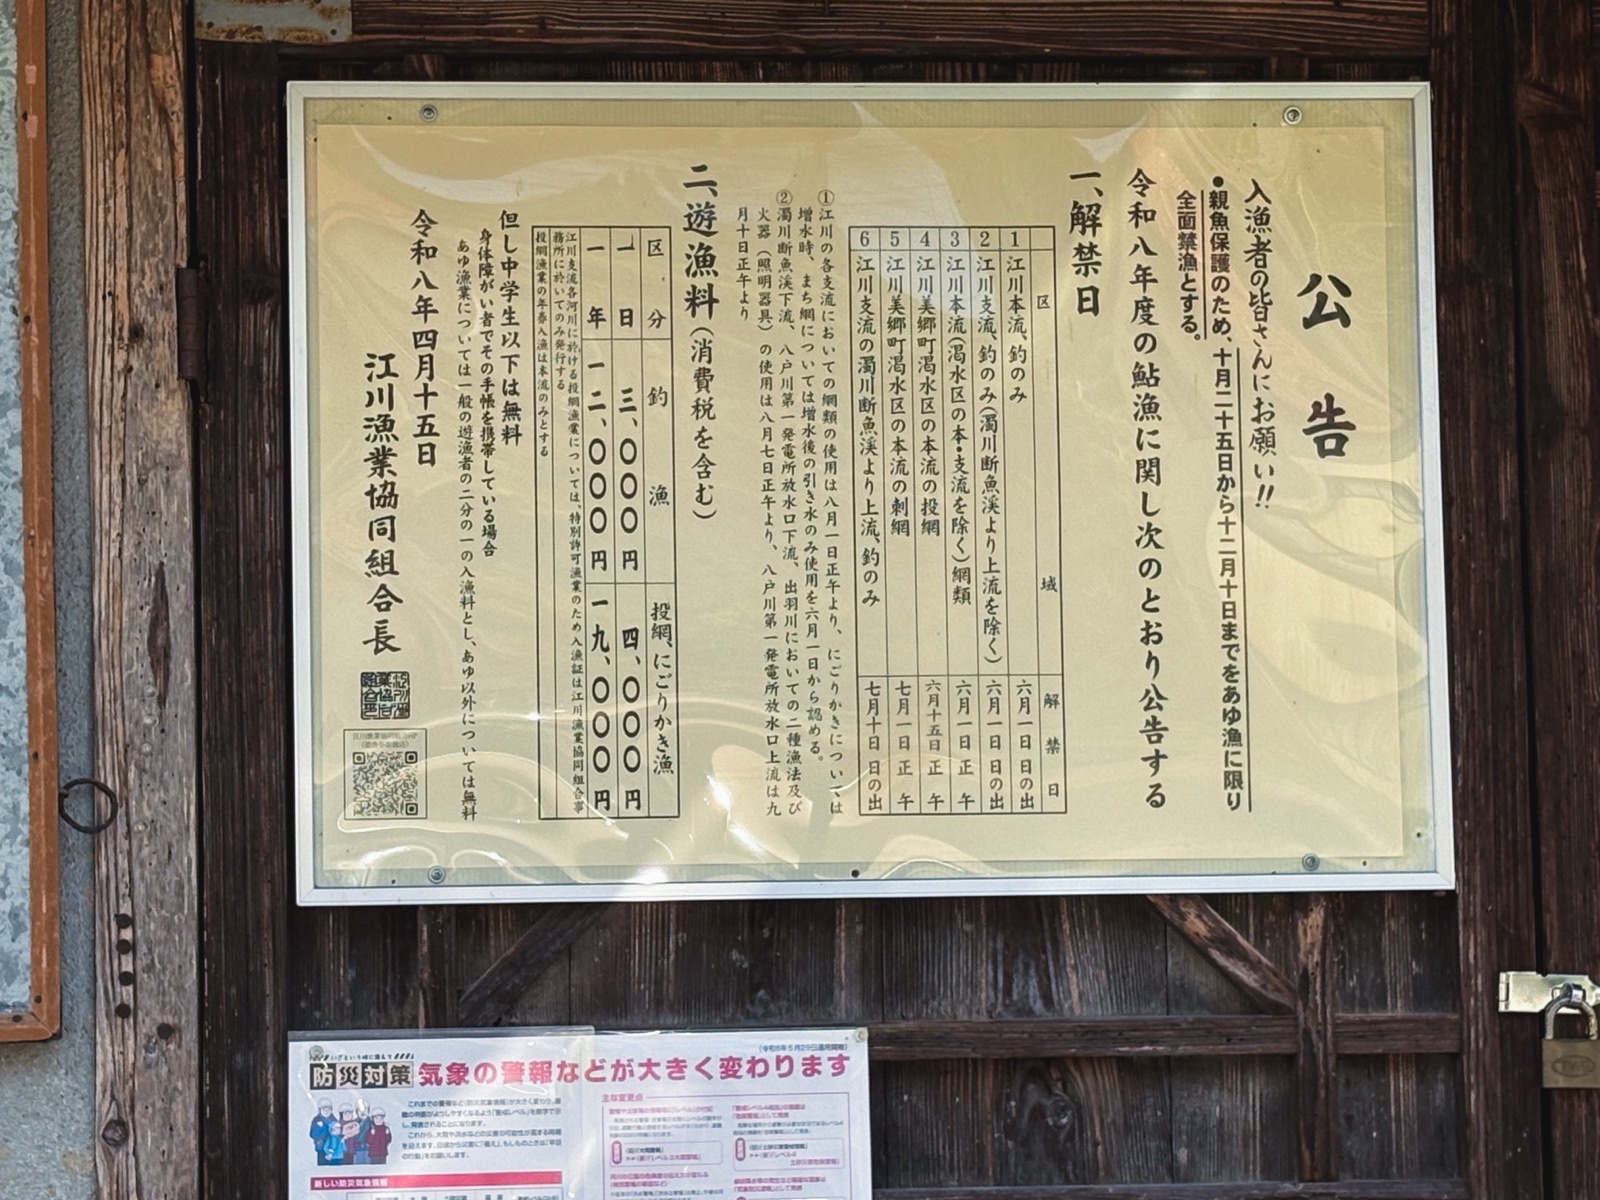 公告
入漁者の皆さんにお願い!!
●親魚保護のため、十月二十五日から十二月十日までをあゆ漁に限り
全面禁漁とする。
令和八年度の鮎漁に関し次のとおり公告する
一、解禁日
区域 解禁日
1 江川本流、釣のみ 六月一日 日の出
2 江川支流、釣のみ(濁川断魚渓より上流を除く) 六月一日 日の出
3 江川本流(渇水区の本・支流を除く)網類 六月一日 正午
4 江川美郷町渇水区の本流の投網 六月十五日 正午
5 江川美郷町渇水区の本流の刺網 七月一日 正午
6 江川支流の濁川断魚渓より上流、釣のみ 七月十日 日の出
①江川の各支流においての網類の使用は八月一日正午より、にごりかきについては
増水時、まち網については増水後の引き水のみ使用を六月一日から認める。
②濁川断魚渓下流、八戸川第一発電所放水口下流、出羽川においての二種漁法及び
火器(照明器具)の使用は八月七日正午より、八戸川第一発電所放水口上流は九
月十日正午より
二、遊漁料(消費税を含む)
区分 釣漁 投網、にごりかき漁
一日 三、〇〇〇円 四、〇〇〇円
一年 一二、〇〇〇円 一九、〇〇〇円
江川支流各河川に於ける投網漁業については、特別許可漁業のため入漁証は江川漁業協同組合事
務所に於いてのみ発行する
投網漁業の年券入漁は本流のみとする
但し中学生以下は無料
身体障がい者でその手帳を携帯している場合
あゆ漁業については一般の遊漁者の二分の一の入漁料とし、あゆ以外については無料
令和八年四月十五日
江川漁業協同組合長
いざという時に備えて
(令和8年5月29日運用開始)
防災対策 気象の警報などが大きく変わります
主な変更点
新しい防災気象情報